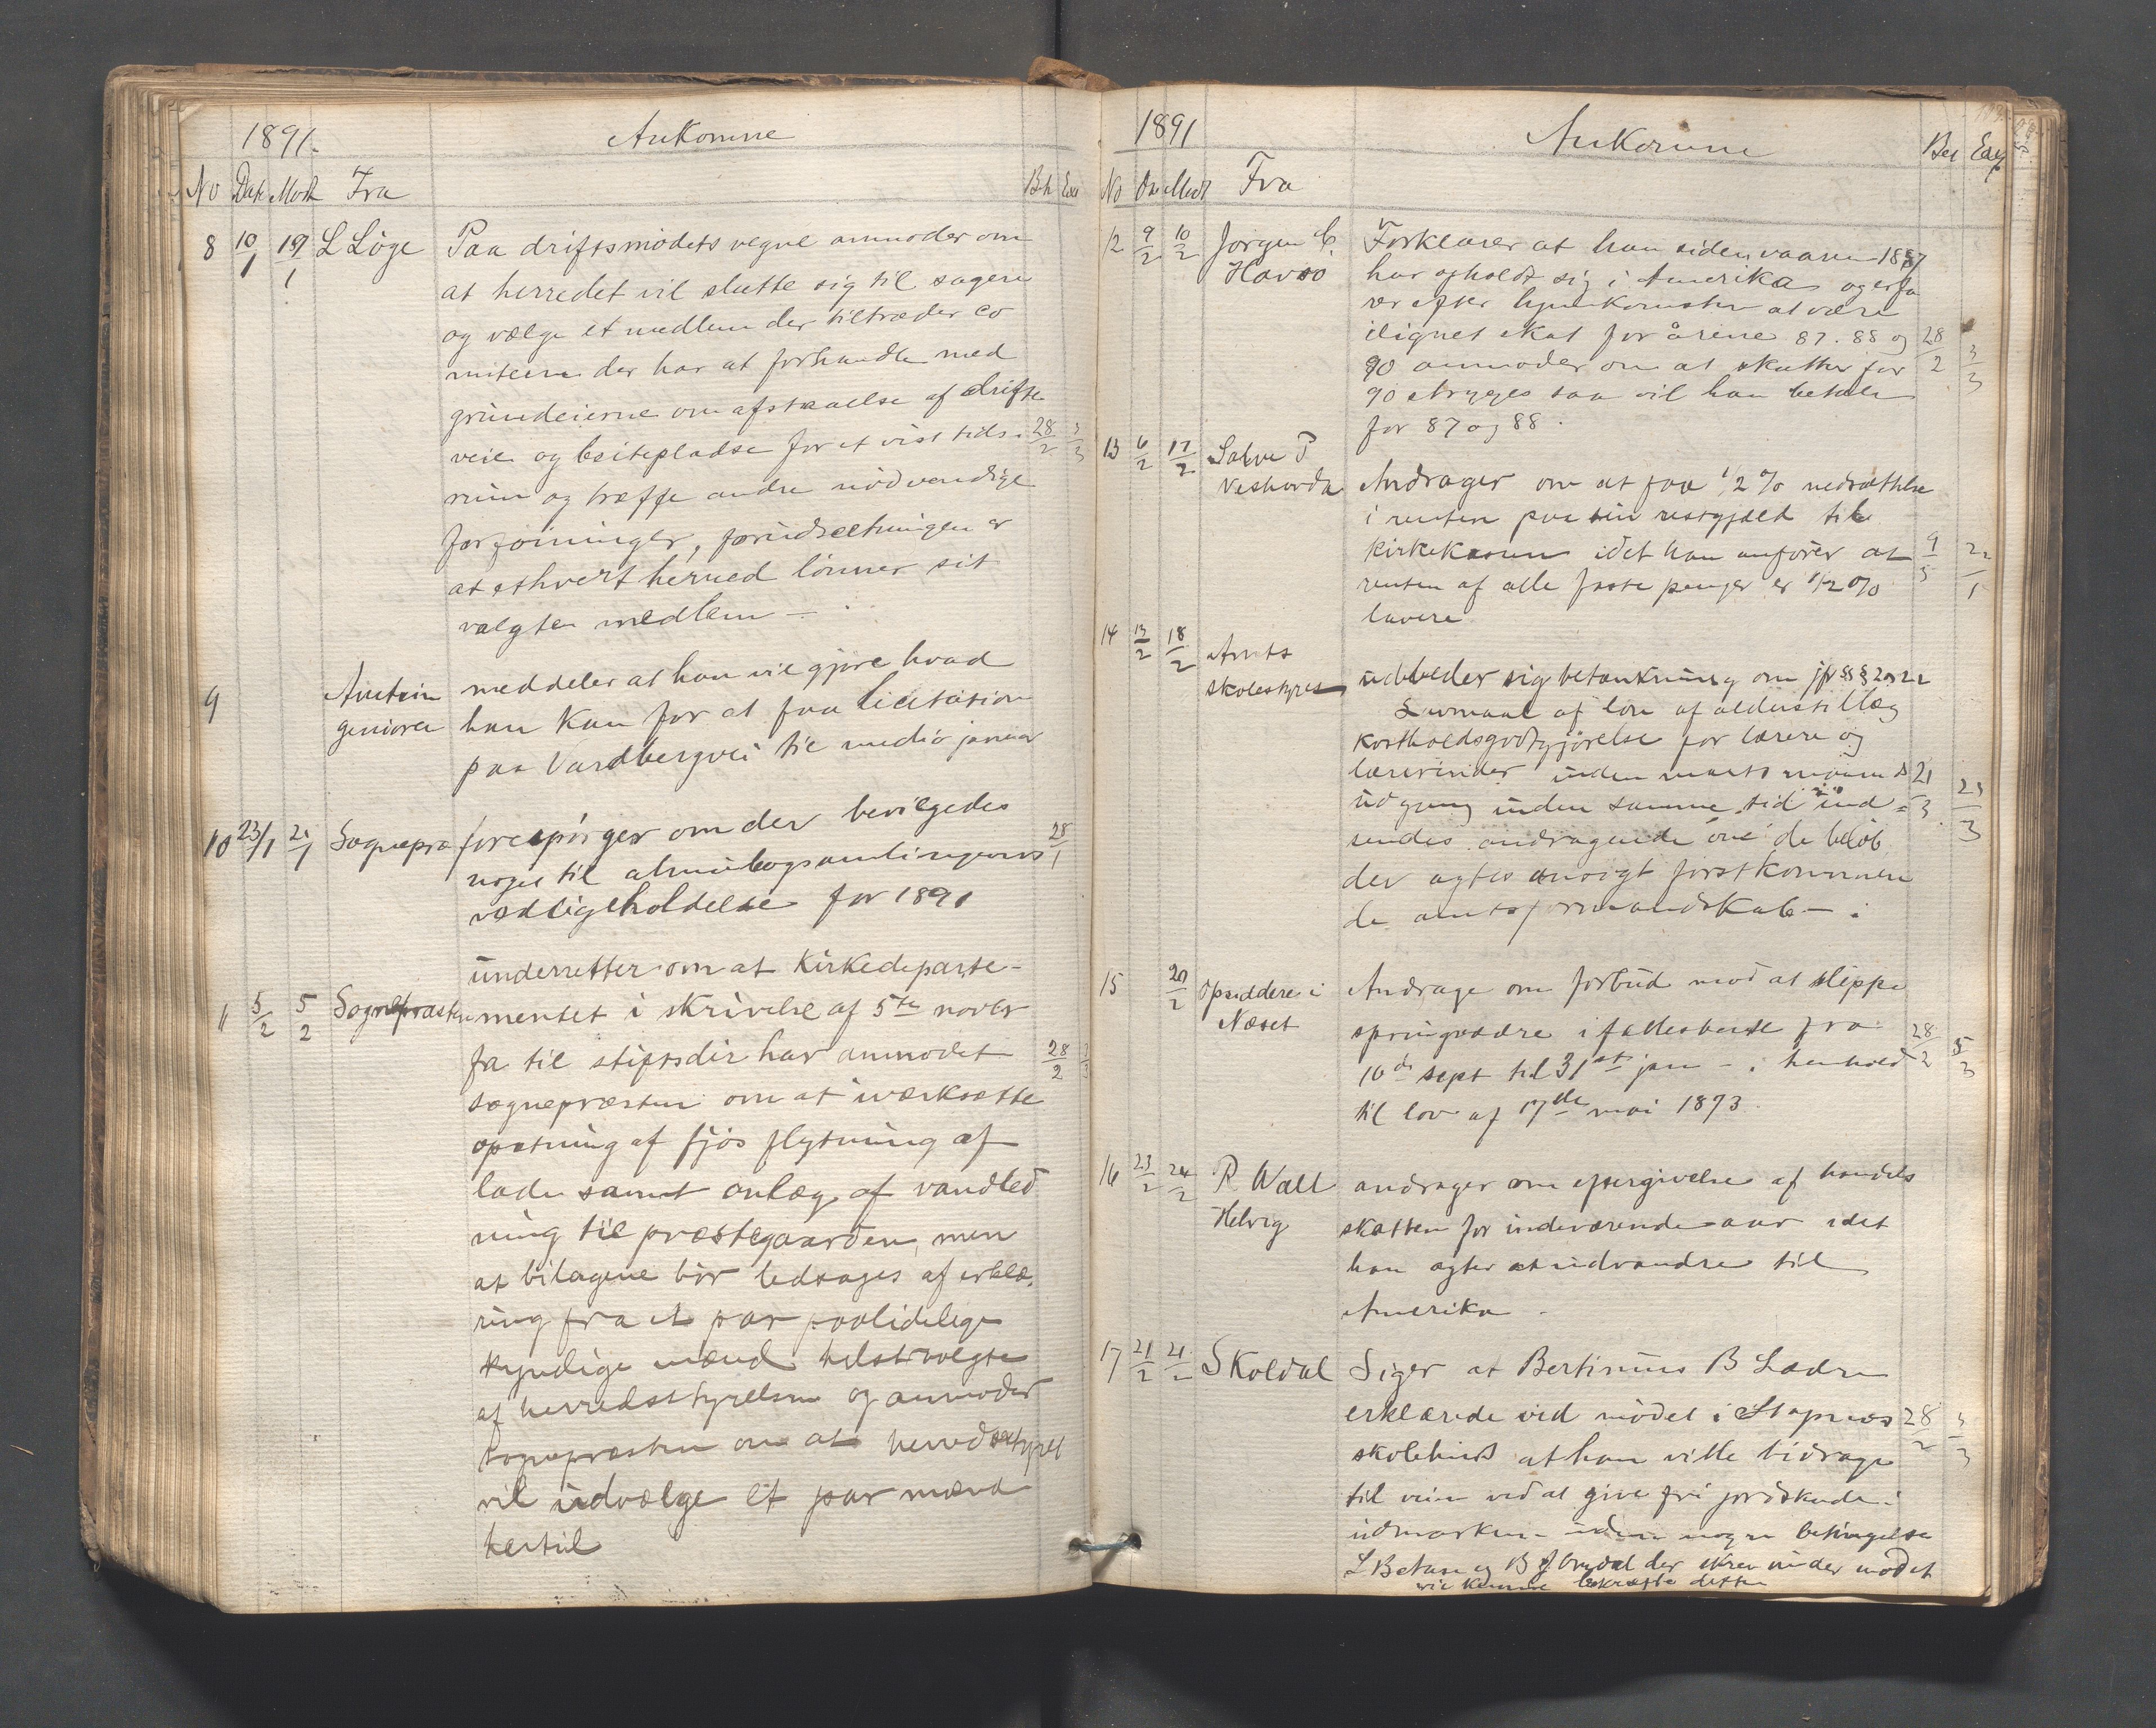 1891.
Ankomne
No Dat Modt Fra
Beh Exp
8 10/1 19/1 L Løge Paa driftsmødets vegne anmoder om
at herredet vil slutte sig til sagen
og vælge et medlem der tiltræder co
miteen der har at forhandle med
grundeierne om afstaaelse af drifte
veie og beitepladse for et vist tids- 28/2 3/3
rum og træffe andre nødvendige
forføininger, forudsætningen er
at ethvert herred lønner sit
valgte medlem —
9 Amtsin meddeler at han vil gjøre hvad
geniøren han kan for at faa licitation
paa Vardbergvei til medio januar
10 23/1 24/1 Sognepræ forespørger om der bevilgedes
noget til almuebogsamlingernes 28/1
vedligeholdelse for 1891
underretter om at Kirkedeparte-
11 5/2 5/2 Sognepræsten mentet i skrivelse af 5te novbr
fa til stiftsdir har anmodet 28/2 3/3
sognepræsten om at iværksætte
opsetning af fjøs flytning af
lade samt anlæg af vandled
ning til præstegaarden, men
at bilagene bør ledsages af erklæ-
ring fra et par paalidelige
kyndige mænd helst valgte
af herredsstyrelsen og anmoder
sognepræsten om at herredsstyret
vil udvælge et par mænd
hertil
1891
Ankomne
No Dat Modt Fra
Beh Exp
12 9/2 10/2 Jørgen C. Forklarer at han siden vaaren 1887
Havsø har opholdt sig i Amerika og erfa
rer efter hjemkomsten at være
ilignet skat for årene 87. 88 og 28/2 3/3
90 anmoder om at skatten for
90 stryges saa vil han betale
for 87 og 88.
13 6/2 17/2 Salve P
Veshovda Andrager om at faa 1/2 % nedsættelse
i renten paa sin restgjæld til
Kirkekassen idet han anfører at 9/5 22/1
renten af alle faste penger er 1/2 %
lavere
14 13/2 18/2 Amts
skolestyret udbeder sig betænkning om jfr §§ 20 22
av løn af alderstillæg
kostholdsgodtgjørelse for lærere og
lærerinder inden marts maaneds 21/3 23/3
udgang inden samme tid ind-
sendes andragende om de beløb
der agtes førstkommen
de amtsformandskab —
15 20/2 Opsiddere i Andrage om forbud mod at slippe
Næset springvædre i fællesbeite fra 28/2 5/3
10de sept til 31st jan — i henhold
til lov af 17de mai 1873.
16 23/2 24/2 R Wall andrager om eftergivelse af handels
Helvig skatten for indeværende aar idet
han agter at udvandre til
Amerika —
17 21/2 21/2 Skoldal Siger at Bertinius B Ladre
erklærede ved mødet i Stapnes 28/2 3/3
skolehus at han vilde bidrage
til veien ved at give fri jordskade i
udmarken — uden nogen betingelse
L Betuse og B J Omdal der skrev under mødet
vil kunne bekræfte dette